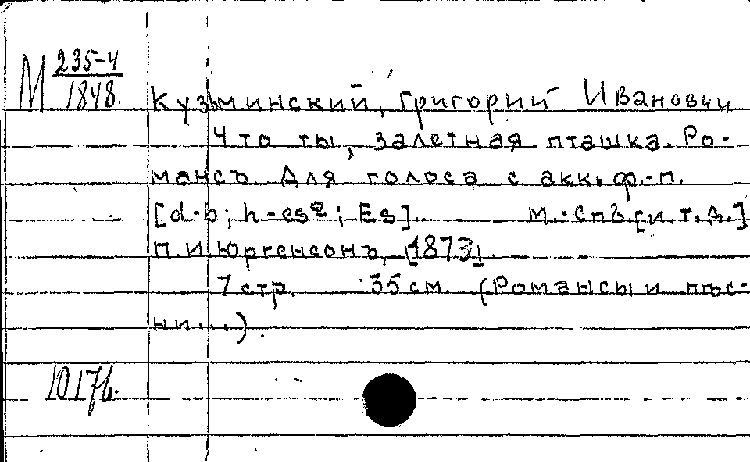 М 235-4
1848
Кузминский, Григорий Иванович
Что ты, залетная пташка. Ро-
мансъ. Для голоса с акк. ф.-п.
[d-b; h-es²; Es]. М.-Спб. [и.т.д.]
П. И Юргенсонъ, [1873].
7 стр. 35 см (Романсы и пѣс-
ни...).